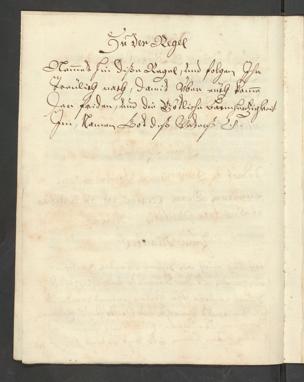 Zu der Regel
Nemmet hin dise Regel, und folgen Ihr
treülich nach, damit über eüch komme
der friden, und die Götliche Barmherzigkeit
Im Namen Got deß Vaters